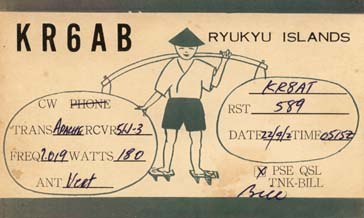 KR6AB
RYUKYU ISLANDS
CW PHONE
TRANS Apache RCVR 51J-3
FREQ 7.019 WATTS 180
ANT Vert
KR8AT
RST 589
DATE 22/9/2 TIME 0515Z
X PSE QSL
TNK-BILL
Bill